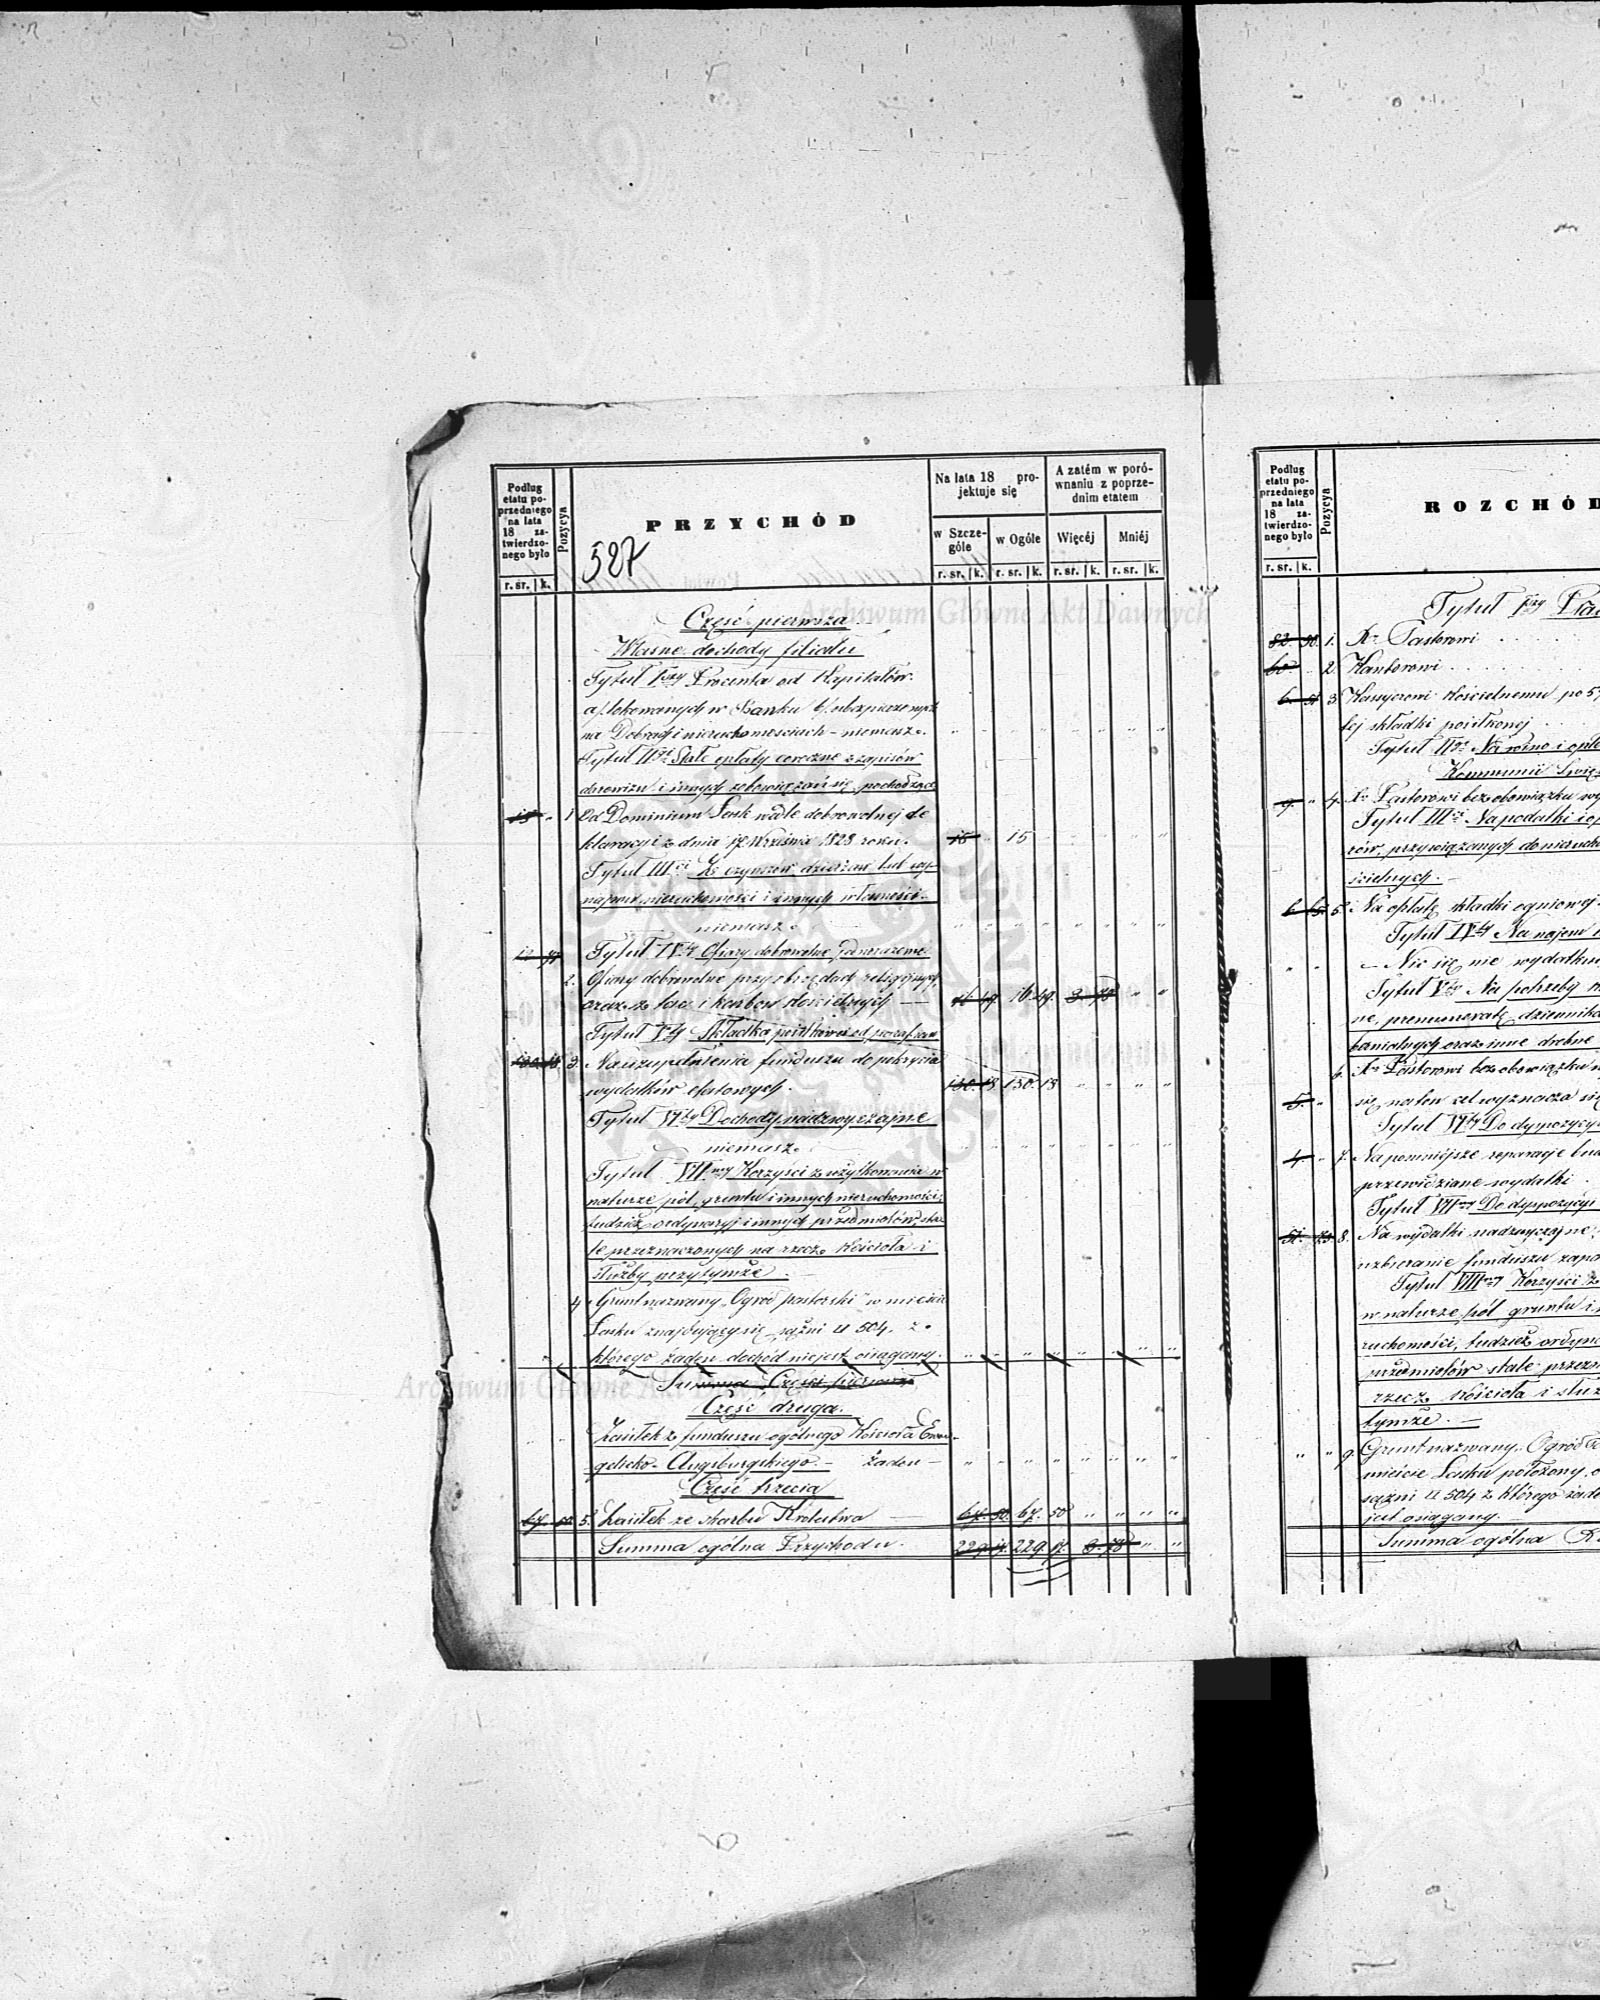 Podług
etatu po-
przedniego
na lata
18 za-
twierdzo-
nego było
Pozycya
PRZYCHÓD
Na lata 18 pro-
jektuje się
A zatém w poró-
wnaniu z poprze-
dnim etatem
w Szcze-
góle
w Ogóle
Więcéj
Mniéj
r. sr. k.
r. sr. k. r. sr. k. r. sr. k. r. sr. k.
527
Część pierwsza
Własne dochody filiału
Tytuł Iszy Procenta od Kapitałów
a/ lokowanych w Banku b/ ubezpieczonych
na Dobrach i nieruchomościach - niemasz.
Tytuł IIgi Stałe opłaty coroczne z zapisów
darowizn i innych zobowiązań się pochodzące
15 " 1 Od Dominium Łask wedle dobrowolnej de
klaracyi z dnia 17 Września 1828 roku. 15 " 15
Tytuł IIIci Z czynszów dzierżaw lub wy-
najmu nieruchomości i innych własności.
niemasz.
Tytuł IVty Ofiary dobrowolne
2. Ofiary dobrowolne przy obrzędach religijnych,
oraz z tac i karbon kościelnych — 16 49 16 49 3 78
Tytuł Vty Składka posiłkowa od parafian
3. Na uzupełnienie funduszu do pokrycia
wydatków etatowych. 130 18 130 18
Tytuł VIty Dochody nadzwyczajne
niemasz.
Tytuł VIImy Korzyści z użytkowania w
naturze pól, gruntu i innych nieruchomości,
tudzież ordynaryj i innych przedmiotów sta-
le przeznaczonych na rzecz Kościoła i
służby przy tymże.
4 Grunt nazwany "Ogród pastorski" w mieście
Łasku znajdujący się sążni □ 504. z
którego żaden dochód niejest osiągany.
Summa Części pierwszej
Część druga.
Zasiłek z funduszu ogólnego Kościoła Ewan-
gelicko-Augsburgskiego. — Żaden —
Część trzecia
67 50 5. Zasiłek ze Skarbu Królestwa — 67 50 67 50
Summa ogólna Przychodu. 229 17 229 17 3 78
Podług
etatu po-
przedniego
na lata
18 za-
twierdzo-
nego było
Pozycya
ROZCHÓD
r. sr. k.
Tytuł Iszy
82 50 1. Pastorowi
60 2. Kantorowi
3. Kassyerowi Kościelnemu po 5
tej składki posiłkowej
Tytuł IIgi Na wino i opła
Kommunii
9 " 4. Pastorowi bez obowiązku
Tytuł IIIci Na podatki i
rów, przywiązanych do nieruch
ścielnych.
5. Na opłatę składki ogniowej
Tytuł IVty Na najem
— Nic się nie wydatkuje
Tytuł Vty Na potrzeby
ne, prenumeratę dziennika
oraz inne drobne
6. Pastorowi bez obowiązku
5 " się na ten cel wyznacza się
Tytuł VIty Do dyspozycyi
4 " 7. Na pomniejsze reparacje
przewidziane wydatki.
Tytuł VIImy Do dyspozycyi
8. Na wydatki nadzwyczajne,
uzbieranie funduszu
Tytuł VIIImy Korzyści z
w naturze pól gruntu i
ruchomości, tudzież ordyna
przedmiotów stale przezna
rzecz Kościoła i służ
tymże. —
9 Grunt nazwany Ogród
mieście Łasku położony
sążni □ 504 z którego żade
jest osiągany. —
Summa ogólna
Archiwum Główne Akt Dawnych
Archiwum Główne Akt Dawnych